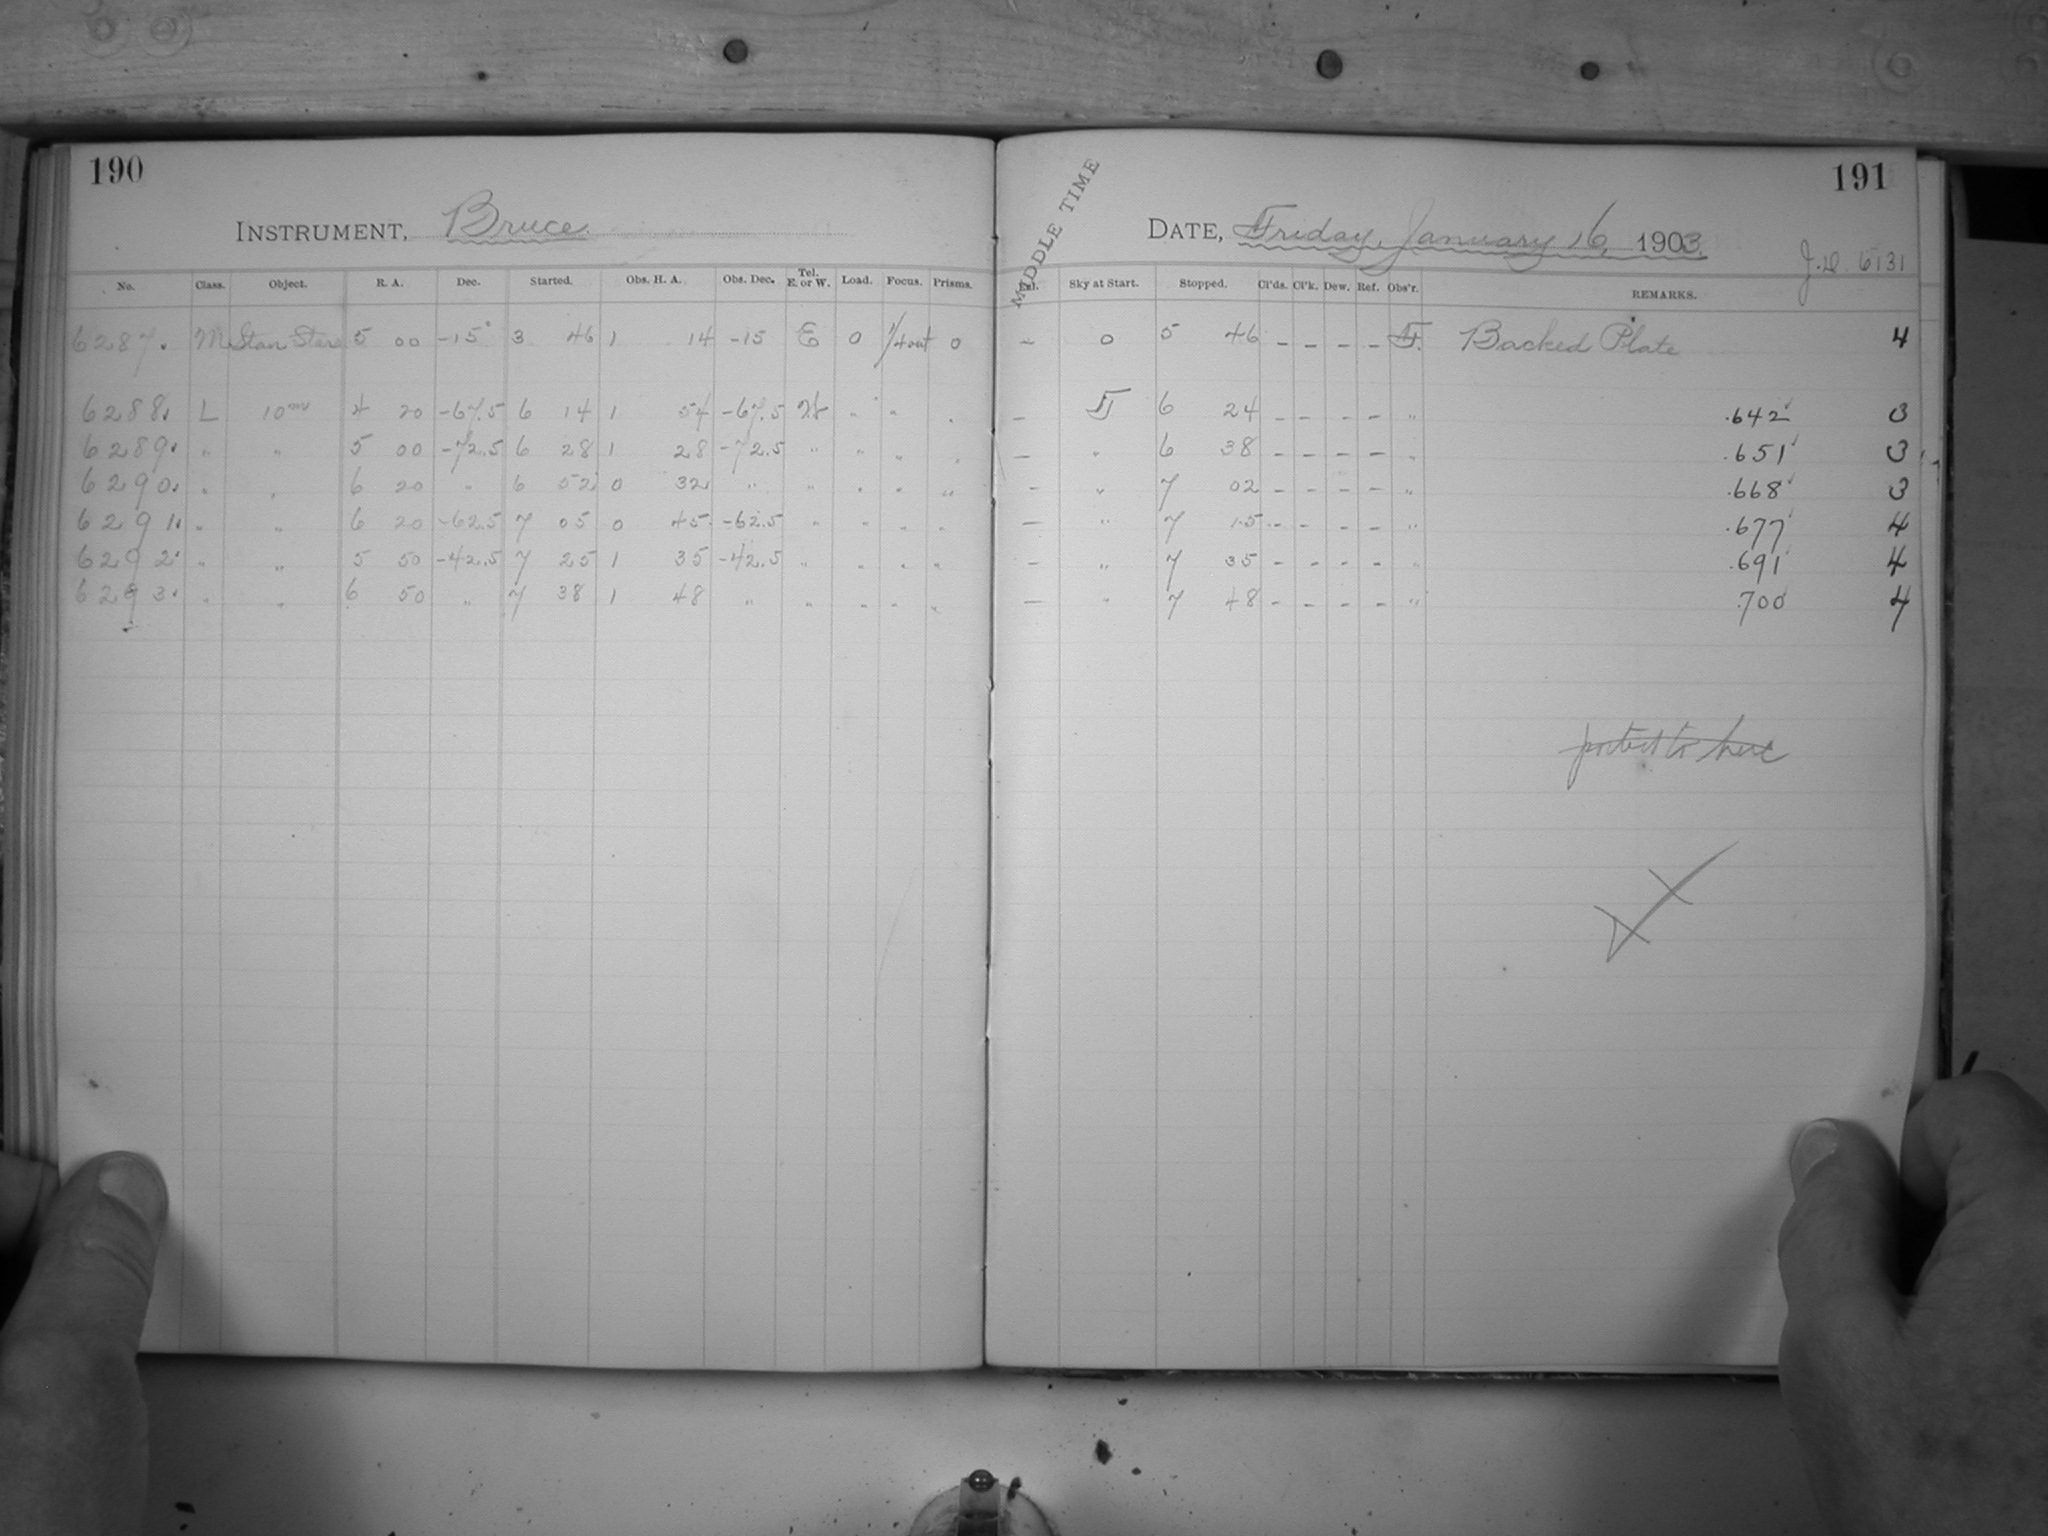 190
INSTRUMENT, Bruce.
No. Class. Object. R. A. Dec. Started. Obs. H. A. Obs. Dec. Tel. E. or W. Load. Focus. Prisms.
6287. M Stan Stars 5 00 -15° 3 46 1 14 -15 E 0 1/4 out 0
6288. L 10m 4 20 -67.5 6 14 1 54 -67.5 W " " "
6289. " " 5 00 -72.5 6 28 1 28 -72.5 " " " "
6290. " " 6 20 " 6 52 0 32 " " " " "
6291. " " 6 20 -62.5 7 05 0 45 -62.5 " " " "
6292. " " 5 50 -42.5 7 25 1 35 -42.5 " " " "
6293. " " 6 50 " 7 38 1 48 " " " " "
191
MIDDLE TIME
DATE, Friday, January 16, 1903.
J.D. 6131
Sky at Start. Stopped. Cl'ds. Cl'k. Dew. Ref. Obs'r. REMARKS.
- 0 5 46 - - - - F. Backed Plate 4
- F 6 24 - - - - " .642 3
- " 6 38 - - - - " .651 3
- " 7 02 - - - - " .668 3
- " 7 15 - - - - " .677 4
- " 7 35 - - - - " .691 4
- " 7 48 - - - - " .700 4
to here